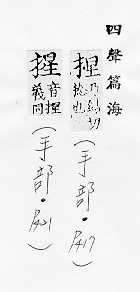 四聲篇海
捏 乃結切捻也 (手部・P417)
揑 音捏義同 (手部・P421)